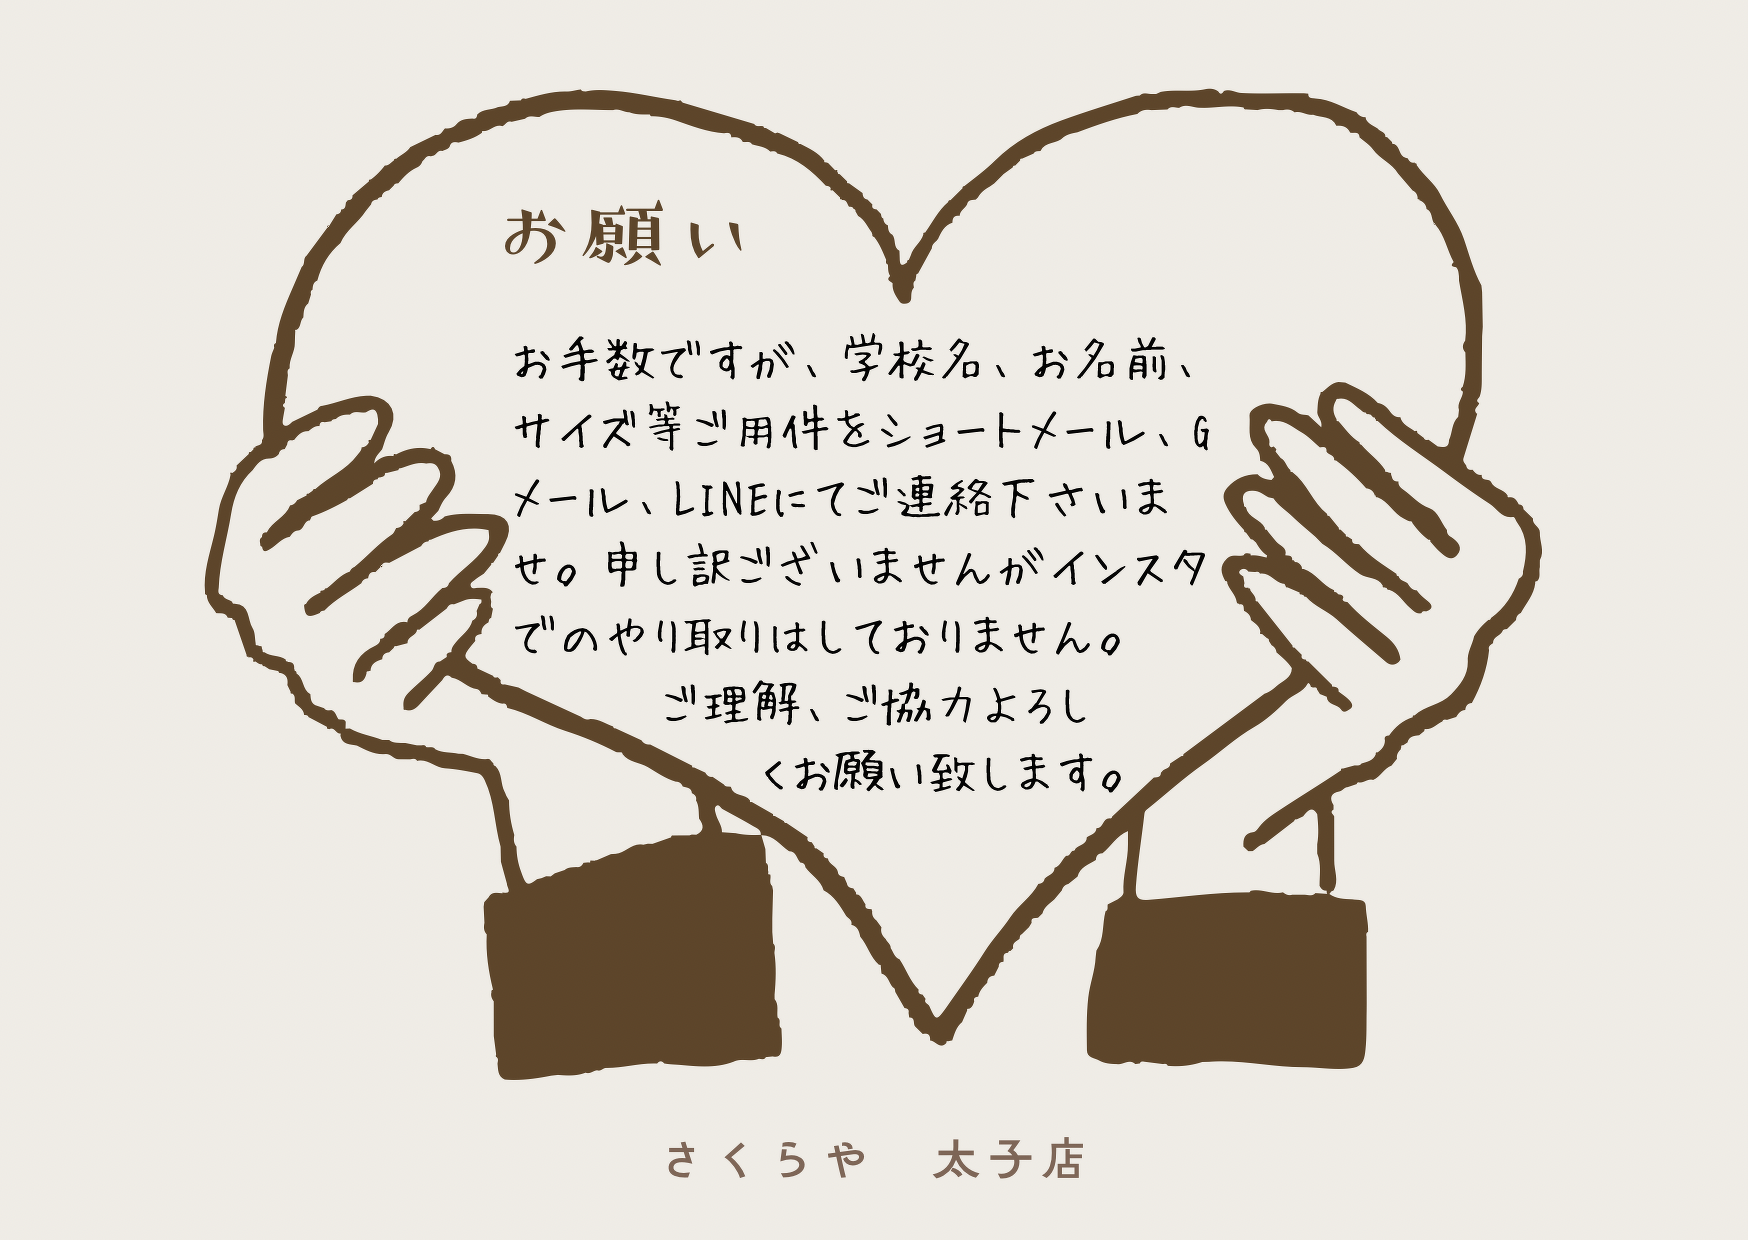 お願い
お手数ですが、学校名、お名前、
サイズ等ご用件をショートメール、G
メール、LINEにてご連絡下さいま
せ。申し訳ございませんがインスタ
でのやり取りはしておりません。
ご理解、ご協力よろし
くお願い致します。
さくらや 太子店